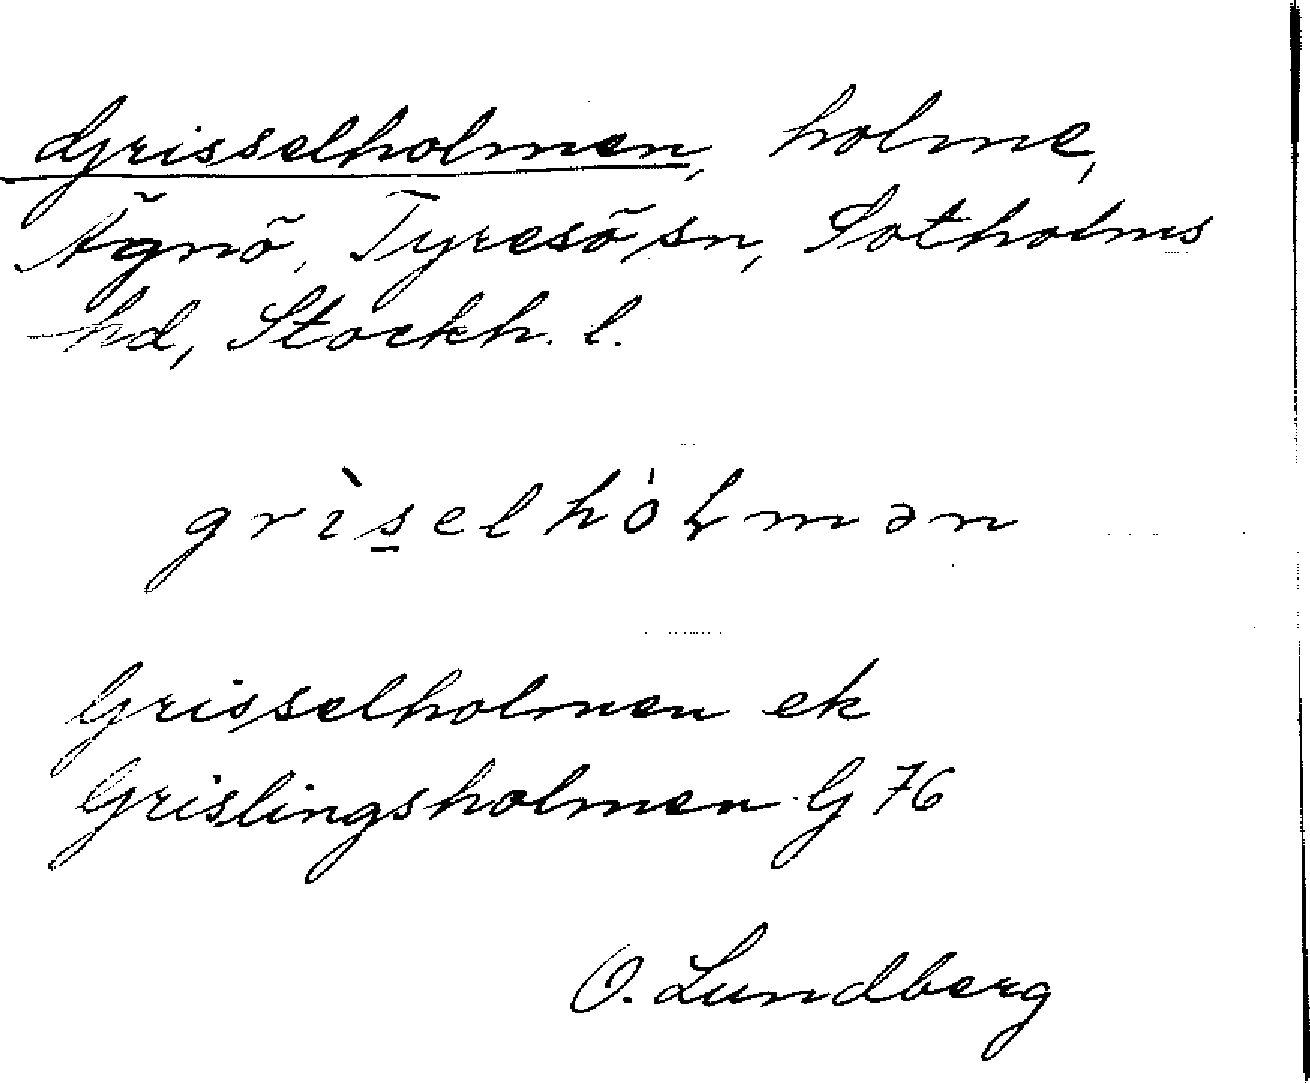 Grisselholmen, holme,
Ägnö, Tyresö sn, Sotholms
hd, Stockh. l.
grìs̱elhȯɫmən
Grisselholmen ek
Grislingsholmen G 76
O. Lundberg